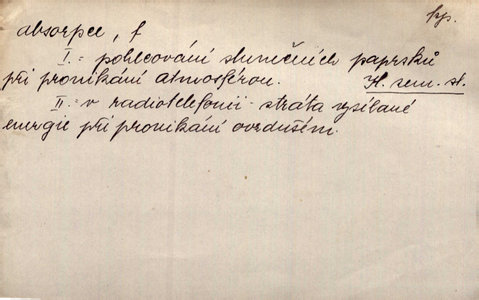 kp.
absorpce, f
I.: pohlcování slunečních paprsků
při pronikání atmosférou. K. zem. st.
II.: v radiotelefonii stráta vysílané
energie při pronikání ovzduším.